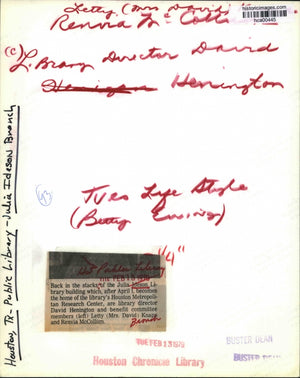 historicimages.com
hca00445
Letty (Mrs David)
Renvia Mc
(c) Library Director David
Henington
Tues Life Style
(Betty Ewing)
Houston, Tx - Public Library - Julia Ideson Branch
Back in the stacks of the Julia Ideson Li-
brary building which, after April 1, becomes
the home of the library's Houston Metropoli-
tan Research Center, are library director
David Henington and benefit committee
members (left) Letty (Mrs. David) Knapp
and Renvia McCollum.
Branch
TUE FEB 13 1979
Houston Chronicle Library
BUSTER DEAN
BUSTER DEAN